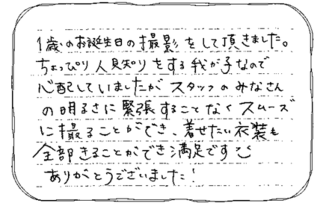 1歳のお誕生日の撮影をして頂きました。
ちょっぴり人見知りをする我が子なので
心配していましたがスタッフのみなさん
の明るさに緊張することなくスムーズ
に撮ることができ、着せたい衣装も
全部きることができ満足です
ありがとうございました!